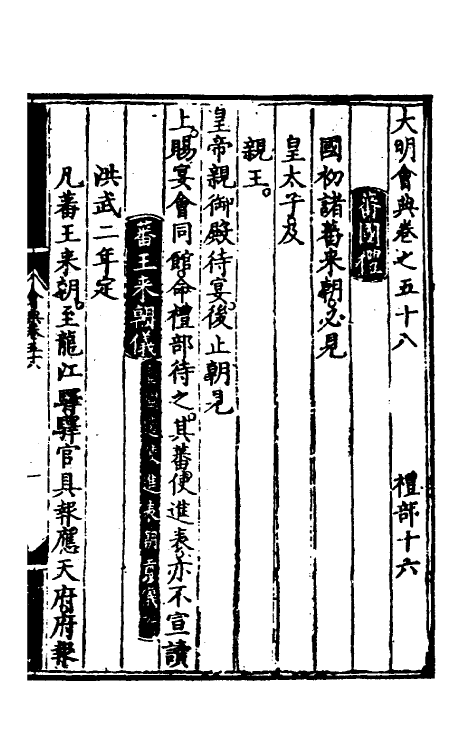 大明會典卷之五十八　禮部十六
蕃國禮
國初諸蕃來朝必見
皇太子及
親王。
皇帝親御殿待宴。後止朝見
上。賜宴會同館命禮部待之。其蕃使進表亦不宣讀
蕃王來朝儀 進表
洪武二年定
凡蕃王來朝。至龍江驛驛官具報應天府府報